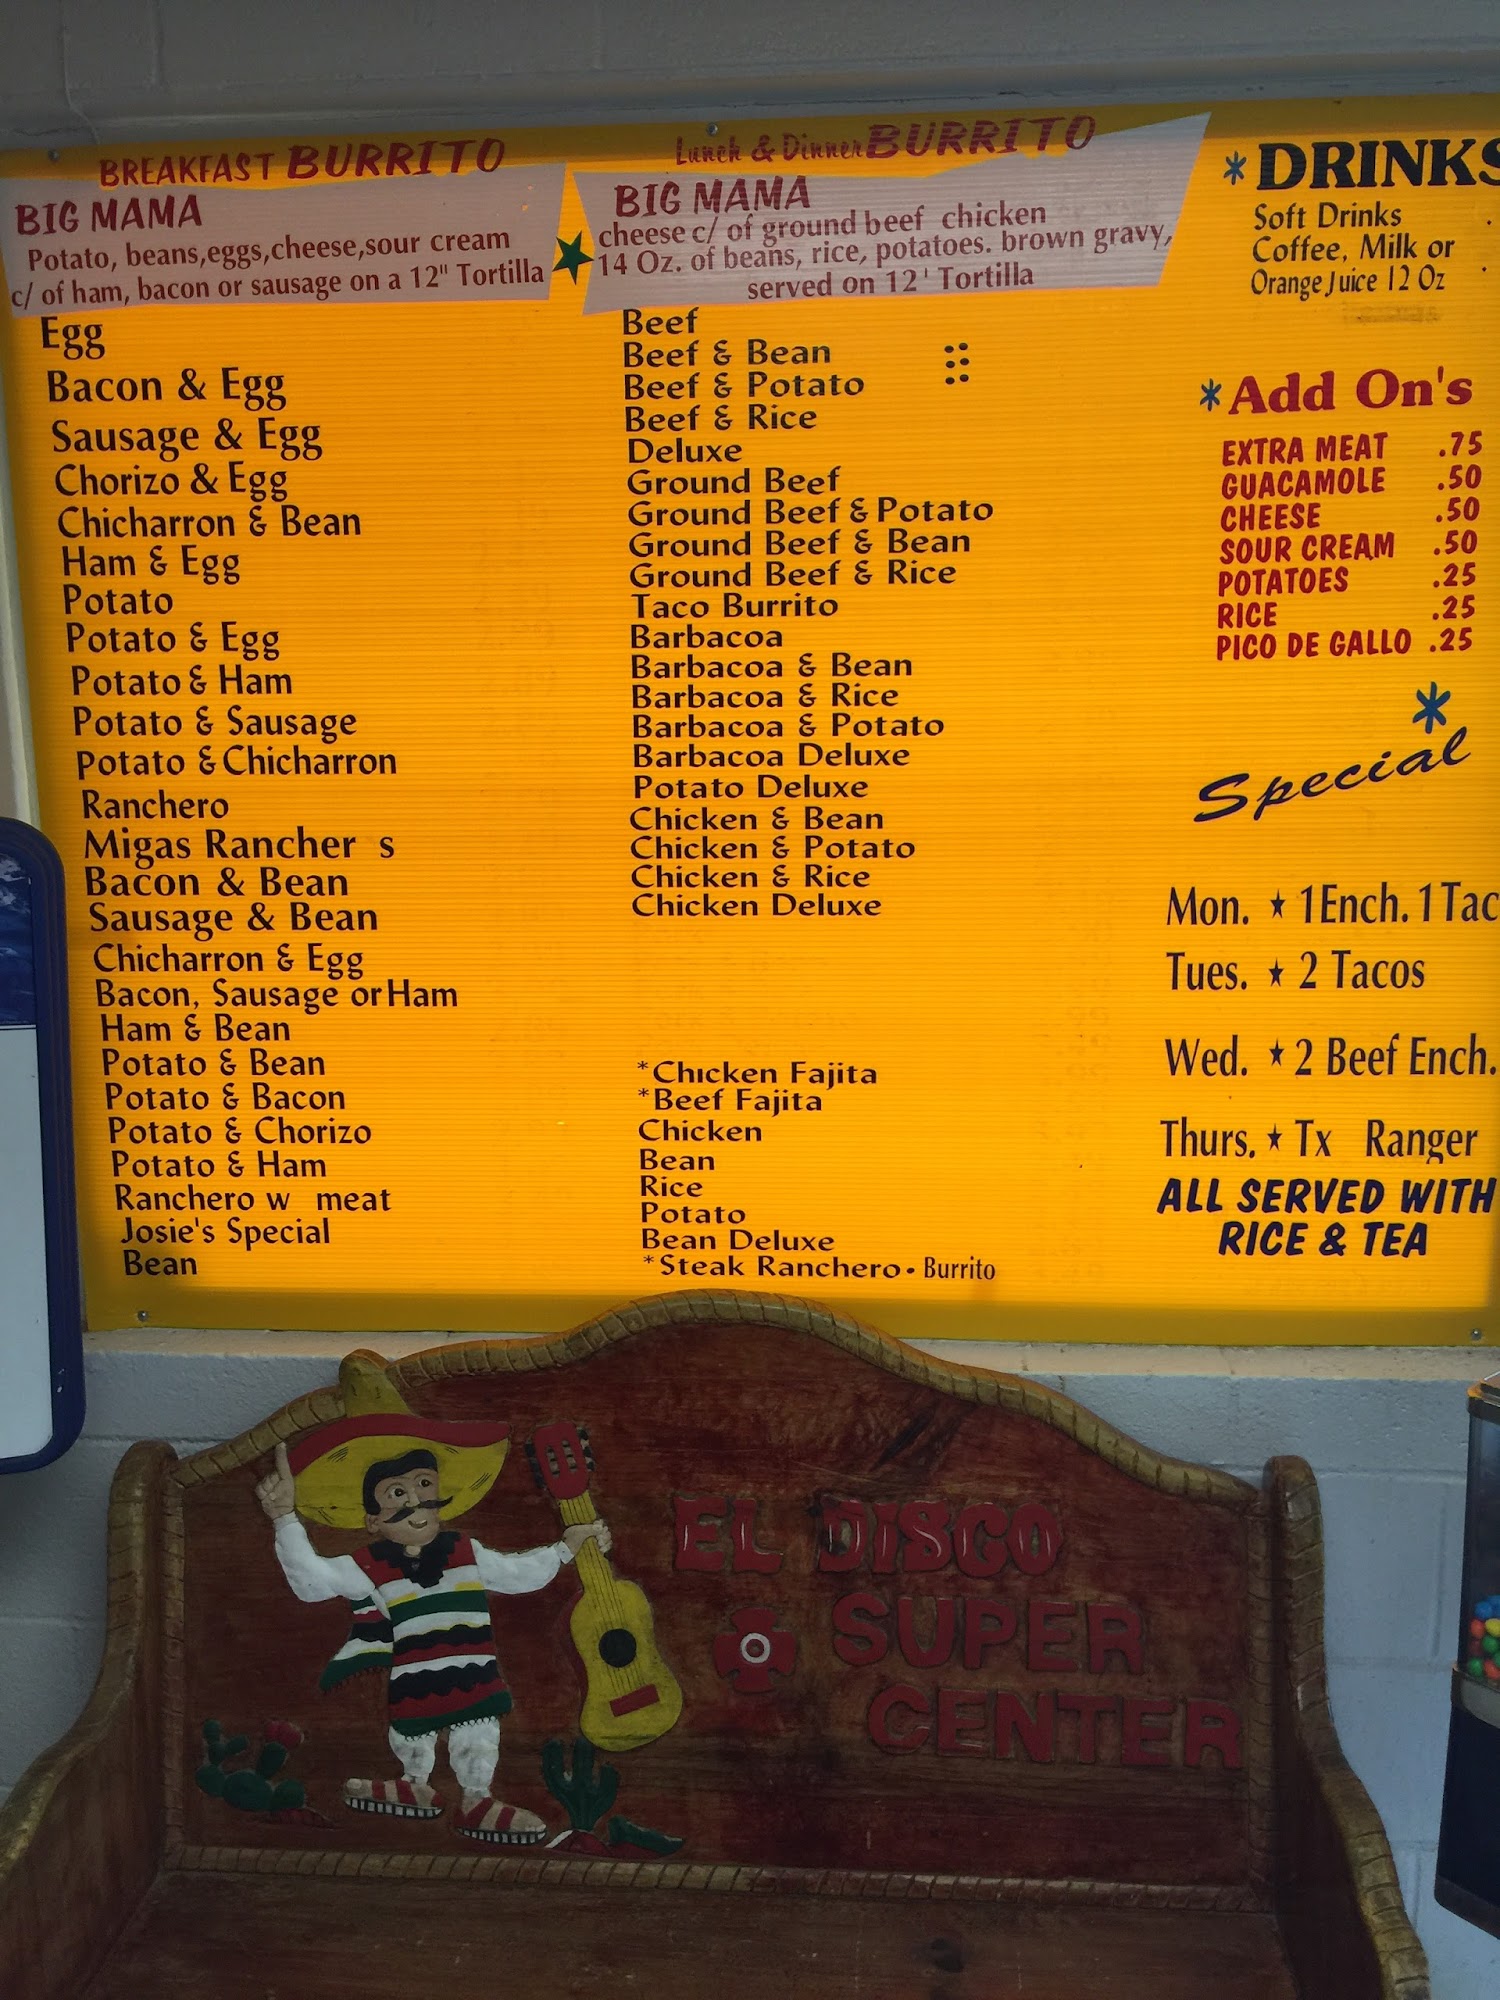 BREAKFAST BURRITO
BIG MAMA
Potato, beans,eggs,cheese,sour cream
c/ of ham, bacon or sausage on a 12" Tortilla
Egg
Bacon & Egg
Sausage & Egg
Chorizo & Egg
Chicharron & Bean
Ham & Egg
Potato
Potato & Egg
Potato & Ham
Potato & Sausage
Potato & Chicharron
Ranchero
Migas Rancher s
Bacon & Bean
Sausage & Bean
Chicharron & Egg
Bacon, Sausage or Ham
Ham & Bean
Potato & Bean
Potato & Bacon
Potato & Chorizo
Potato & Ham
Ranchero w meat
Josie's Special
Bean
Lunch & Dinner BURRITO
BIG MAMA
cheese c/ of ground beef chicken
14 Oz. of beans, rice, potatoes. brown gravy,
served on 12' Tortilla
Beef
Beef & Bean
Beef & Potato
Beef & Rice
Deluxe
Ground Beef
Ground Beef & Potato
Ground Beef & Bean
Ground Beef & Rice
Taco Burrito
Barbacoa
Barbacoa & Bean
Barbacoa & Rice
Barbacoa & Potato
Barbacoa Deluxe
Potato Deluxe
Chicken & Bean
Chicken & Potato
Chicken & Rice
Chicken Deluxe
*Chicken Fajita
*Beef Fajita
Chicken
Bean
Rice
Potato
Bean Deluxe
*Steak Ranchero • Burrito
*DRINKS
Soft Drinks
Coffee, Milk or
Orange Juice 12 Oz
*Add On's
EXTRA MEAT .75
GUACAMOLE .50
CHEESE .50
SOUR CREAM .50
POTATOES .25
RICE .25
PICO DE GALLO .25
*
Special
Mon. ★ 1 Ench. 1 Tac
Tues. ★ 2 Tacos
Wed. ★ 2 Beef Ench.
Thurs. ★ Tx Ranger
ALL SERVED WITH
RICE & TEA
EL DISCO
SUPER
CENTER